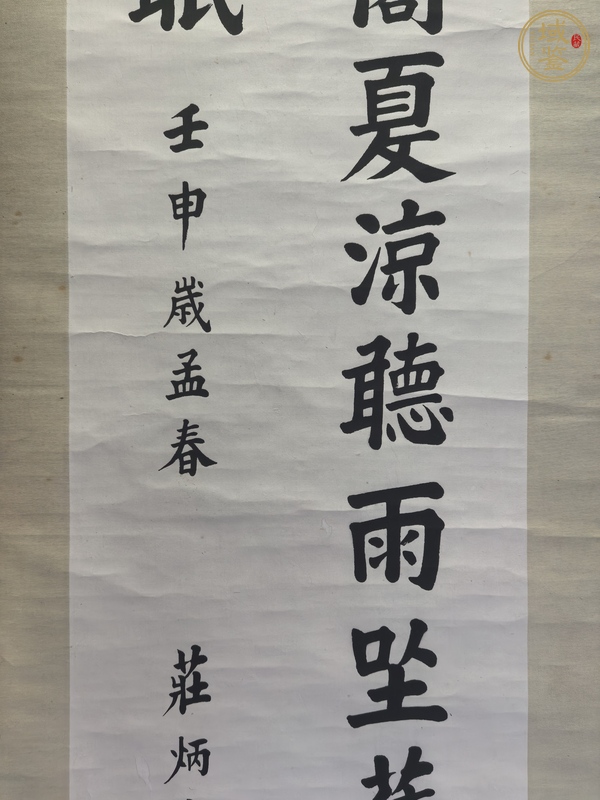 夏涼聽雨坐
眠
壬申歲孟春 莊炳